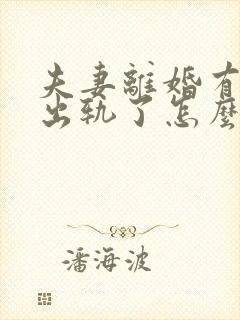 夫妻離婚有
出軌了怎麼
潘海波